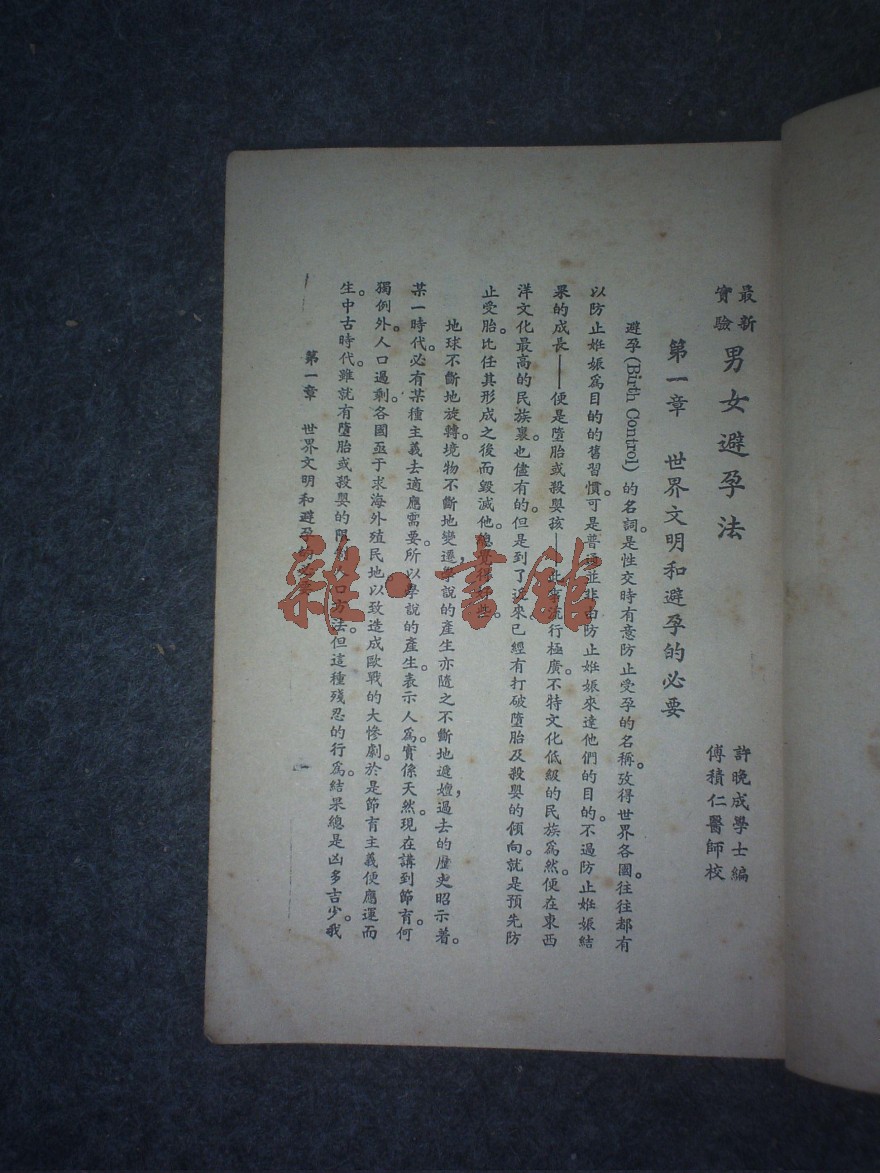 最新
實驗
男女避孕法
許晚成學士編
傅積仁醫師校
第一章 世界文明和避孕的必要
避孕(Birth Control)的名詞。是性交時有意防止受孕的名稱。攷得世界各國。往往都有
以防止姙娠爲目的的舊習慣。可是普通並非由防止姙娠來達他們的目的。不過防止姙娠結
果的成長——便是墮胎或殺嬰孩—此風流行極廣。不特文化低級的民族爲然。便在東西
洋文化最高的民族裏。也儘有的。但是到了近來。已經有打破墮胎及殺嬰的傾向。就是預先防
止受胎。比任其形成之後而毀滅他。總覺得好些。
地球不斷地旋轉。境物不斷地變遷。學說的產生亦隨之不斷地遞嬗。過去的歷史昭示着。
某一時代。必有某種主義去適應需要。所以學說的產生。表示人爲。實係天然。現在講到節育。何
獨例外。人口過剩。各國亟于求海外殖民地。以致造成歐戰的大慘劇。於是節育主義便應運而
生。中古時代。雖就有墮胎或殺嬰的限制人口方法。但這種殘忍的行爲。結果總是凶多吉少。我
第一章 世界文明和避孕的必要
一
雜·書館